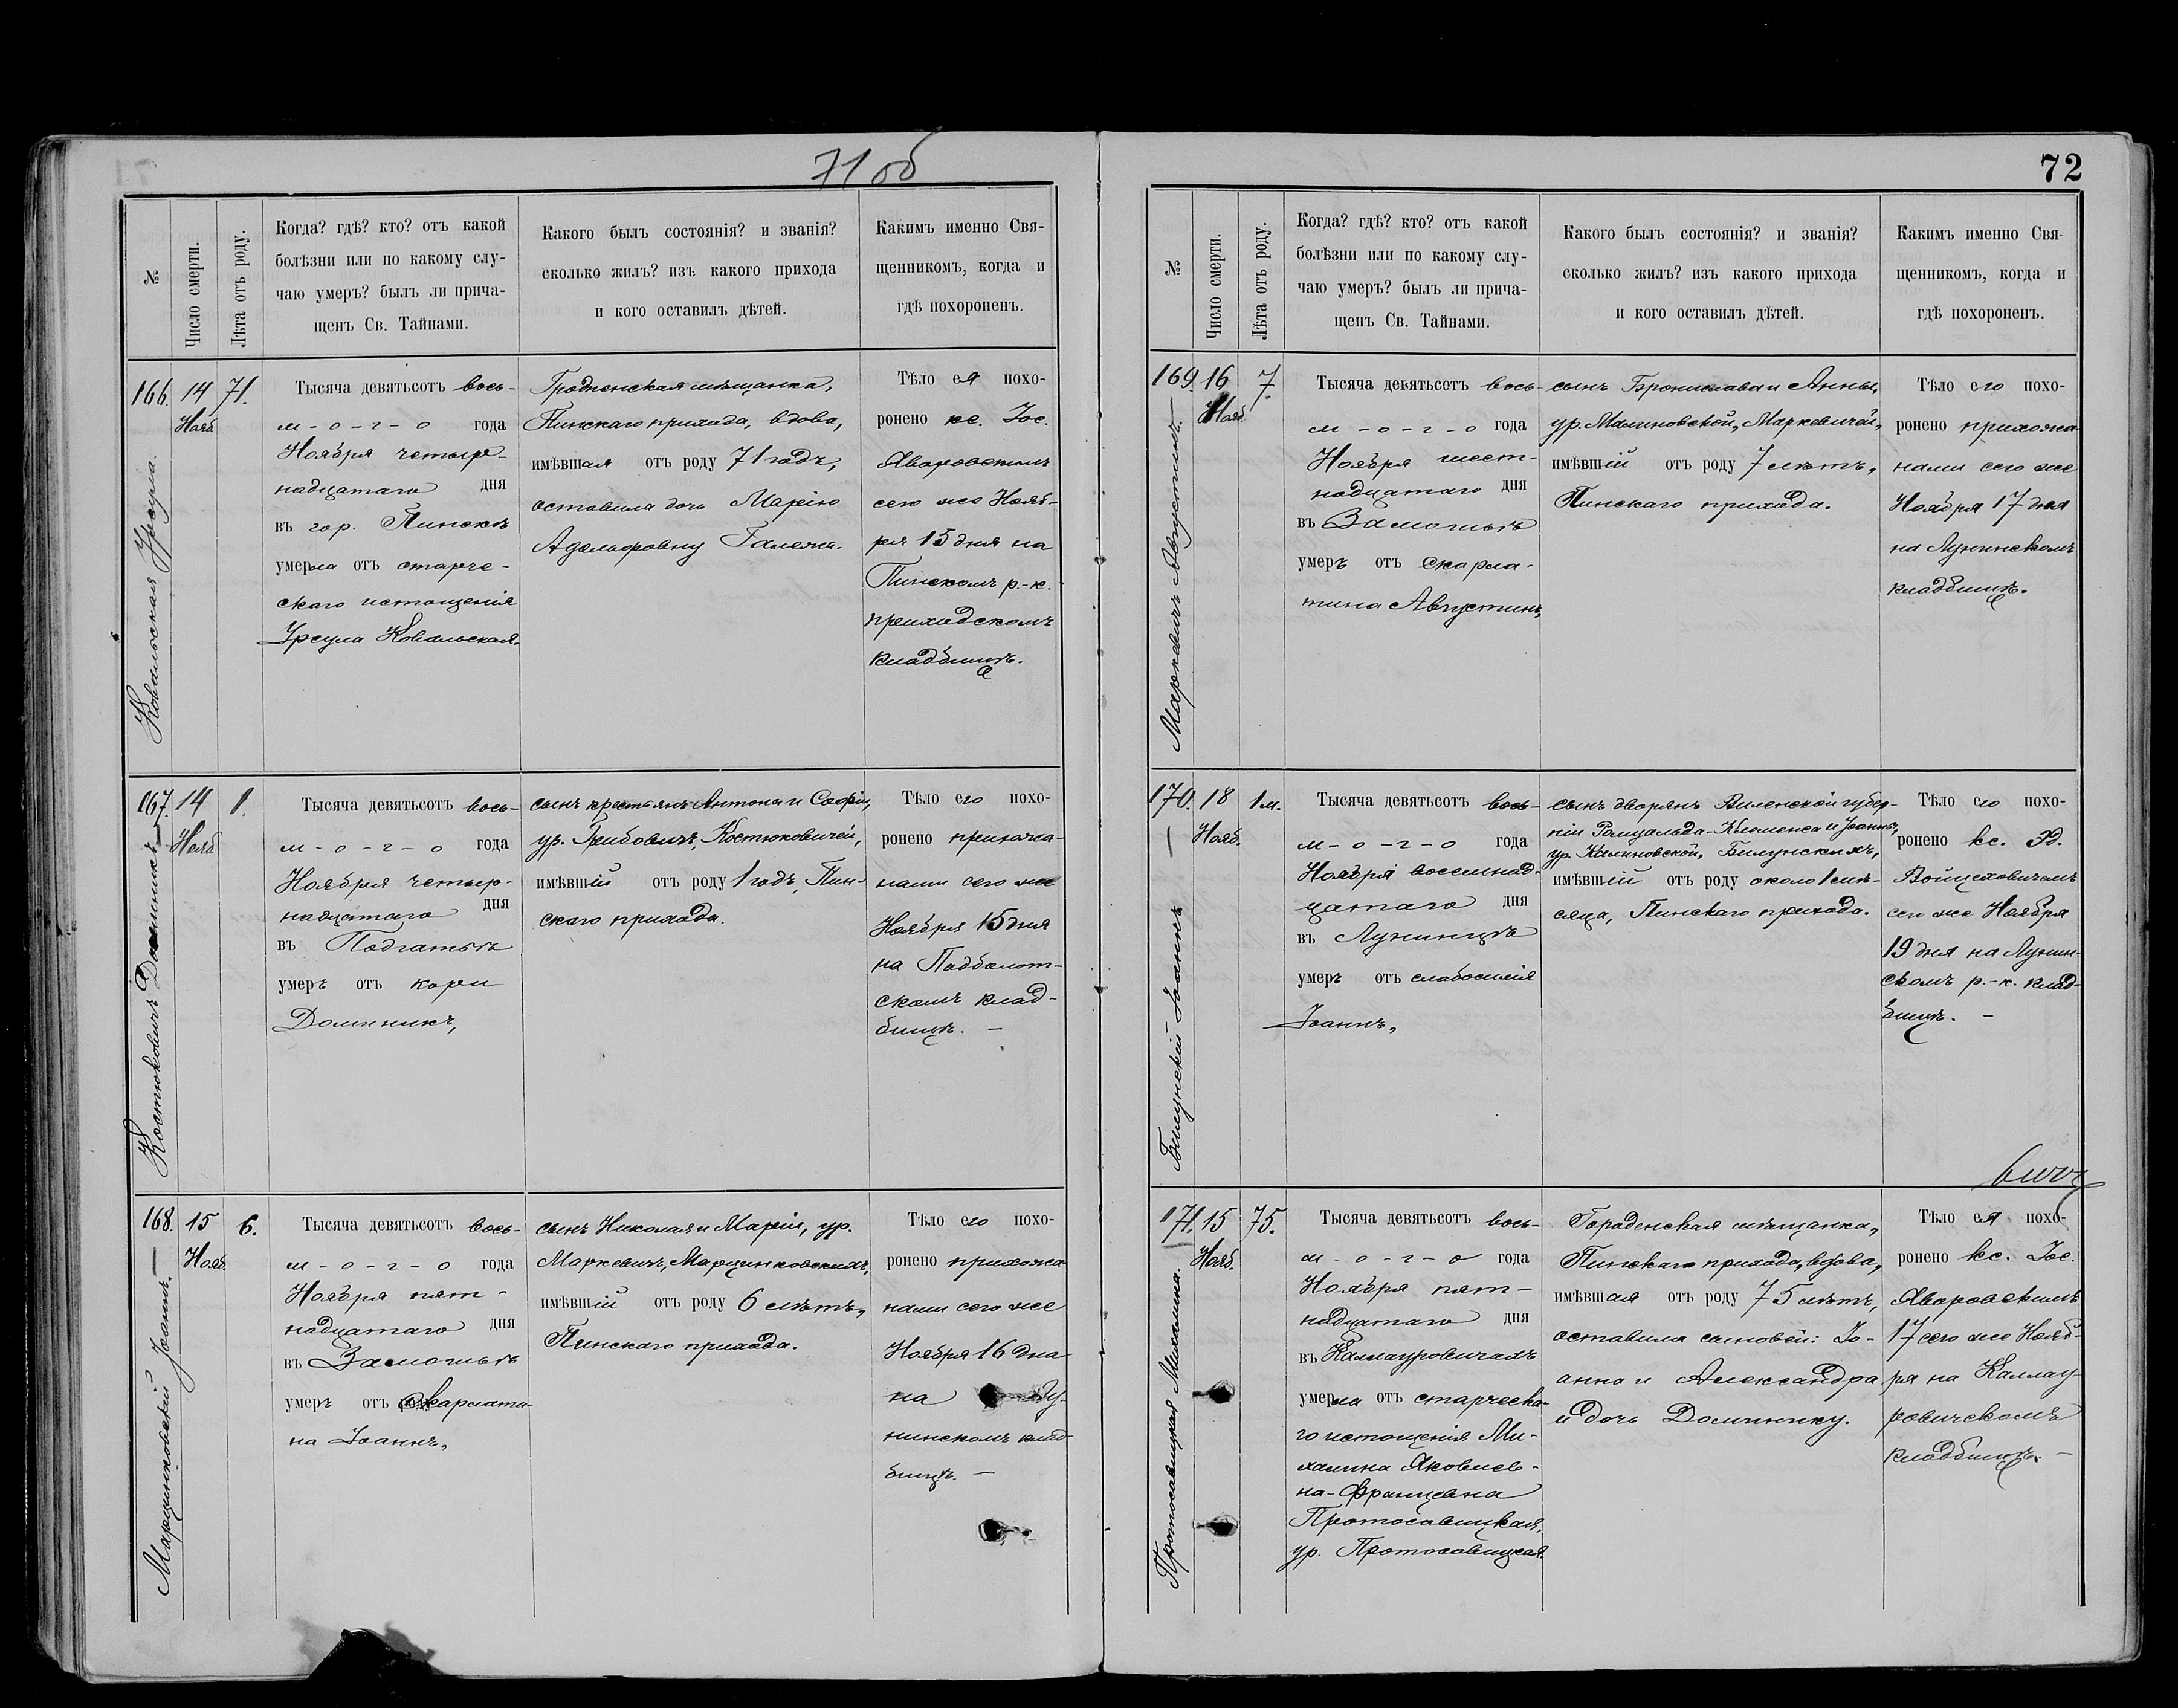 71 об
№
Число смерти.
Лѣта отъ роду.
Когда? гдѣ? кто? отъ какой
болѣзни или по какому слу-
чаю умеръ? былъ ли прича-
щенъ Св. Тайнами.
Какого былъ состоянія? и званія?
сколько жилъ? изъ какого прихода
и кого оставилъ дѣтей.
Какимъ именно Свя-
щенникомъ, когда и
гдѣ похороненъ.
Ковальская Урсула.
166. 14 71.
Нояб.
Тысяча девятьсотъ вось-
м-о-г-о года
Ноября четыр-
надцатаго дня
въ гор. Пинскѣ
умерла отъ старче-
скаго истощенія
Урсула Ковальская.
Гродненская мѣщанка,
Пинскаго прихода, вдова,
имѣвшая отъ роду 71 годъ,
оставила дочь Марію
Адольфовну
Тѣло ея похо-
ронено кс. Іос.
Яворовскимъ
сего же Нояб-
ря 15 дня на
Пинскомъ р.-к.
приходскомъ
кладбищѣ.
Костюковичъ Доминикъ
167. 14 1.
Нояб.
Тысяча девятьсотъ вось-
м-о-г-о года
Ноября четыр-
надцатаго дня
въ Подгатьѣ
умеръ отъ кори
Доминикъ,
сынъ крестьянъ Антона и Софіи,
ур. Грибовичъ, Костюковичей,
имѣвшій отъ роду 1 годъ, Пин-
скаго прихода.
Тѣло его похо-
ронено прихожа-
нами сего же
Ноября 15 дня
на Падболот-
скомъ клад-
бищѣ. –
Марцинковскій Іоаннъ. –
168. 15 6.
Нояб.
Тысяча девятьсотъ вось-
м-о-г-о года
Ноября пят-
надцатаго дня
въ Замошьѣ
умеръ отъ скарлати-
на Іоаннъ,
сынъ Николая и Маріи, ур.
Маркевичъ, Марцинковскихъ,
имѣвшій отъ роду 6 лѣтъ,
Пинскаго прихода.
Тѣло его похо-
ронено прихожа-
нами сего же
Ноября 16 дня
на Лу-
нинскомъ клад-
бищѣ. –
72
№
Число смерти.
Лѣта отъ роду.
Когда? гдѣ? кто? отъ какой
болѣзни или по какому слу-
чаю умеръ? былъ ли прича-
щенъ Св. Тайнами.
Какого былъ состоянія? и званія?
сколько жилъ? изъ какого прихода
и кого оставилъ дѣтей.
Какимъ именно Свя-
щенникомъ, когда и
гдѣ похороненъ.
Маркевичъ Августинъ. –
169. 16 7.
Нояб.
Тысяча девятьсотъ вось-
м-о-г-о года
Ноября шест-
надцатаго дня
въ Замошьѣ
умеръ отъ скарла-
тина Августинъ,
сынъ Бронислава и Анны,
ур. Малиновской, Маркевичей,
имѣвшій отъ роду 7 лѣтъ,
Пинскаго прихода.
Тѣло его похо-
ронено прихожа-
нами сего же
Ноября 17 дня
на Лунинскомъ
кладбищѣ.
Билунскій Іоаннъ –
170. 18 1 м.
Нояб.
Тысяча девятьсотъ вось-
м-о-г-о года
Ноября восемнад-
цатаго дня
въ Лунинцѣ
умеръ отъ слабосилія
Іоаннъ,
сынъ дворянъ Виленской губер-
ніи Ромуальда-Климента и Іоанны,
ур. Калиновской, Билунскихъ,
имѣвшій отъ роду около 1 мѣ-
сяца, Пинскаго прихода.
Тѣло его похо-
ронено кс. Эд.
Войцеховичемъ
сего же Ноября
19 дня на Лунин-
скомъ р.-к. клад-
бищѣ. –
Протосавицкая Михалина.
171. 15 75.
Нояб.
Тысяча девятьсотъ вось-
м-о-г-о года
Ноября пят-
надцатаго дня
въ Каллауровичахъ
умерла отъ старческа-
го истощенія Ми-
халина Яковлев-
на-Францевна
Протосавицкая,
ур. Протосавицкая.
Гораденская мѣщанка,
Пинскаго прихода, вдова,
имѣвшая отъ роду 75 лѣтъ,
оставила сыновей: Іо-
анна и Александра
и дочь Доминику.
Тѣло ея похо-
ронено кс. Іос.
Яворовскимъ
17 сего же Нояб-
ря на Каллау-
ровичскомъ
кладбищѣ. –